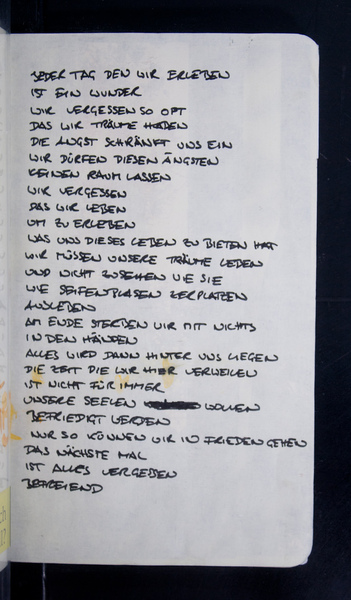 JEDER TAG DEN WIR ERLEBEN
IST EIN WUNDER
WIR VERGESSEN SO OFT
DAS WIR TRÄUME HABEN
DIE ANGST SCHRÄNKT UNS EIN
WIR DÜRFEN DIESEN ÄNGSTEN
KEINEN RAUM LASSEN
WIR VERGESSEN
DAS WIR LEBEN
UM ZU ERLEBEN
WAS UNS DIESES LEBEN ZU BIETEN HAT
WIR MÜSSEN UNSERE TRÄUME LEBEN
UND NICHT ZUSEHEN WIE SIE
WIE SEIFENBLASEN ZERPLATZEN
AUSLEBEN
AM ENDE STERBEN WIR MIT NICHTS
IN DEN HÄNDEN
ALLES WIRD DANN HINTER UNS LIEGEN
DIE ZEIT DIE WIR HIER VERWEILEN
IST NICHT FÜR IMMER
UNSERE SEELEN WOLLEN
BEFRIEDIGT WERDEN
NUR SO KÖNNEN WIR IN FRIEDEN GEHEN
DAS NÄCHSTE MAL
IST ALLES VERGESSEN
BEFREIEND